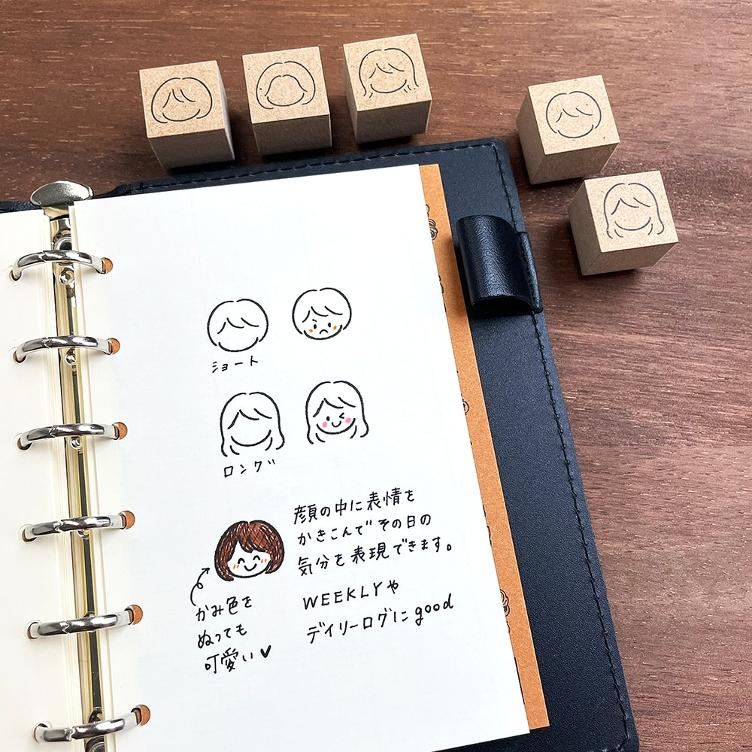 ショート
ロング
顔の中に表情を
かきこんで その日の
気分を表現できます。
WEEKLYや
デイリーログに good
かみ色を
ぬっても
可愛い♥